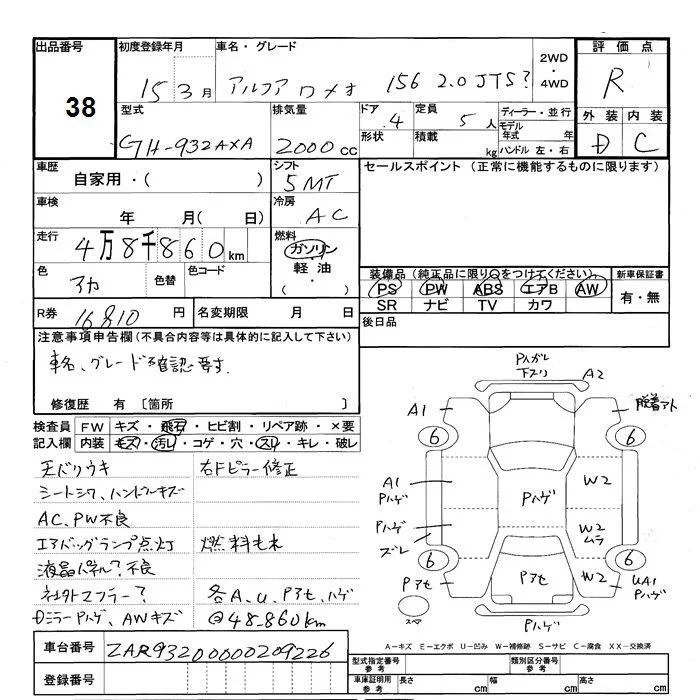 出品番号
38
初度登録年月
15 3月
車名・グレード
アルファ ロメオ 156 2.0 JTS?
2WD
・
4WD
評価点
R
外装 内装
D C
型式
GH-932AXA
排気量
2000 cc
ドア 4
形状
定員 5 人
積載 kg
ディーラー・並行
モデル年式 年
ハンドル 左・右
車歴
自家用・( )
シフト
5MT
セールスポイント (正常に機能するものに限ります)
車検
年 月( 日)
冷房
AC
走行
4万8千860km
燃料
ガソリン
軽油
( ・ )
色
アカ
色替
色コード
装備品(純正品に限り○をつけてください)
PS PW ABS エアB AW
SR ナビ TV カワ
新車保証書
有・無
R券 16810 円
名変期限 月 日
後日品
注意事項申告欄(不具合内容等は具体的に記入して下さい)
車名、グレード確認要す.
修復歴 有 [箇所 ]
検査員記入欄
FW キズ・飛石・ヒビ割・リペア跡・×要
内装 キズ・汚レ・コゲ・穴・スレ・キレ・破レ
天バリウキ
シートシワ、ハンドルキズ
AC、PW不良
エアバッグランプ点灯
液晶パネル?不良
社外マフラー?
Dミラー Pハゲ、AWキズ
右Fピラー修正
燃料もれ
各A、U、Pアセ、ハゲ
@48,860km
Pハガレ
下スリ
A2
A1
脱着アト
6
6
A1
Pハゲ
Pハゲ
W2
Pハゲ
ズレ
W2
ムラ
6
6
Pアセ
Pアセ
W2
UA1
Pハゲ
スペア
Pハゲ
A-キズ E-エクボ U-凹み W-補修跡 S-サビ C-腐食 XX-交換済
車台番号
ZAR93200000209226
登録番号
型式指定番号
参考
類別区分番号
参考
車庫証明用
参考
長さ cm
幅 cm
高さ cm